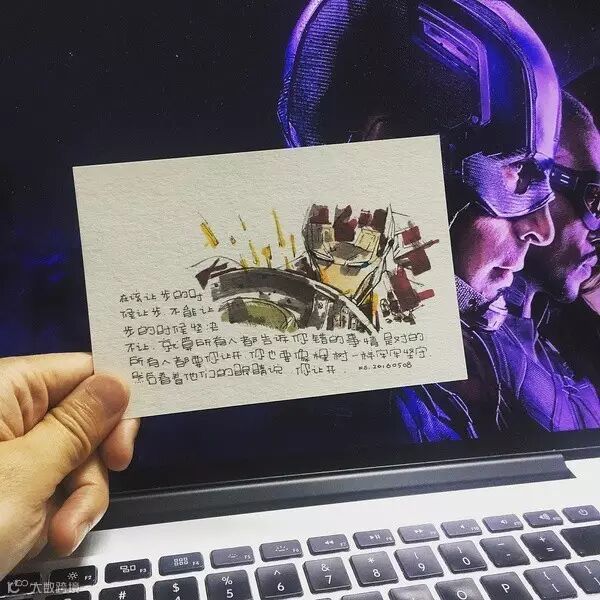 在该让步的时
候让步.不能让
步的时候坚决
不让.就算所有人都告诉你错的事情是对的
所有人都要你让开.你也要像棵树一样牢牢坚守
然后看着他们的眼睛说.你让开. KB.20160508
F2
F3
F4
F5
F6
F7
F8
F9
F10
F11
F12
#
3
$
4
%
5
^
6
&
7
*
8
(
9
)
0
E
R
T
Y
U
I
O
P
大数跨境